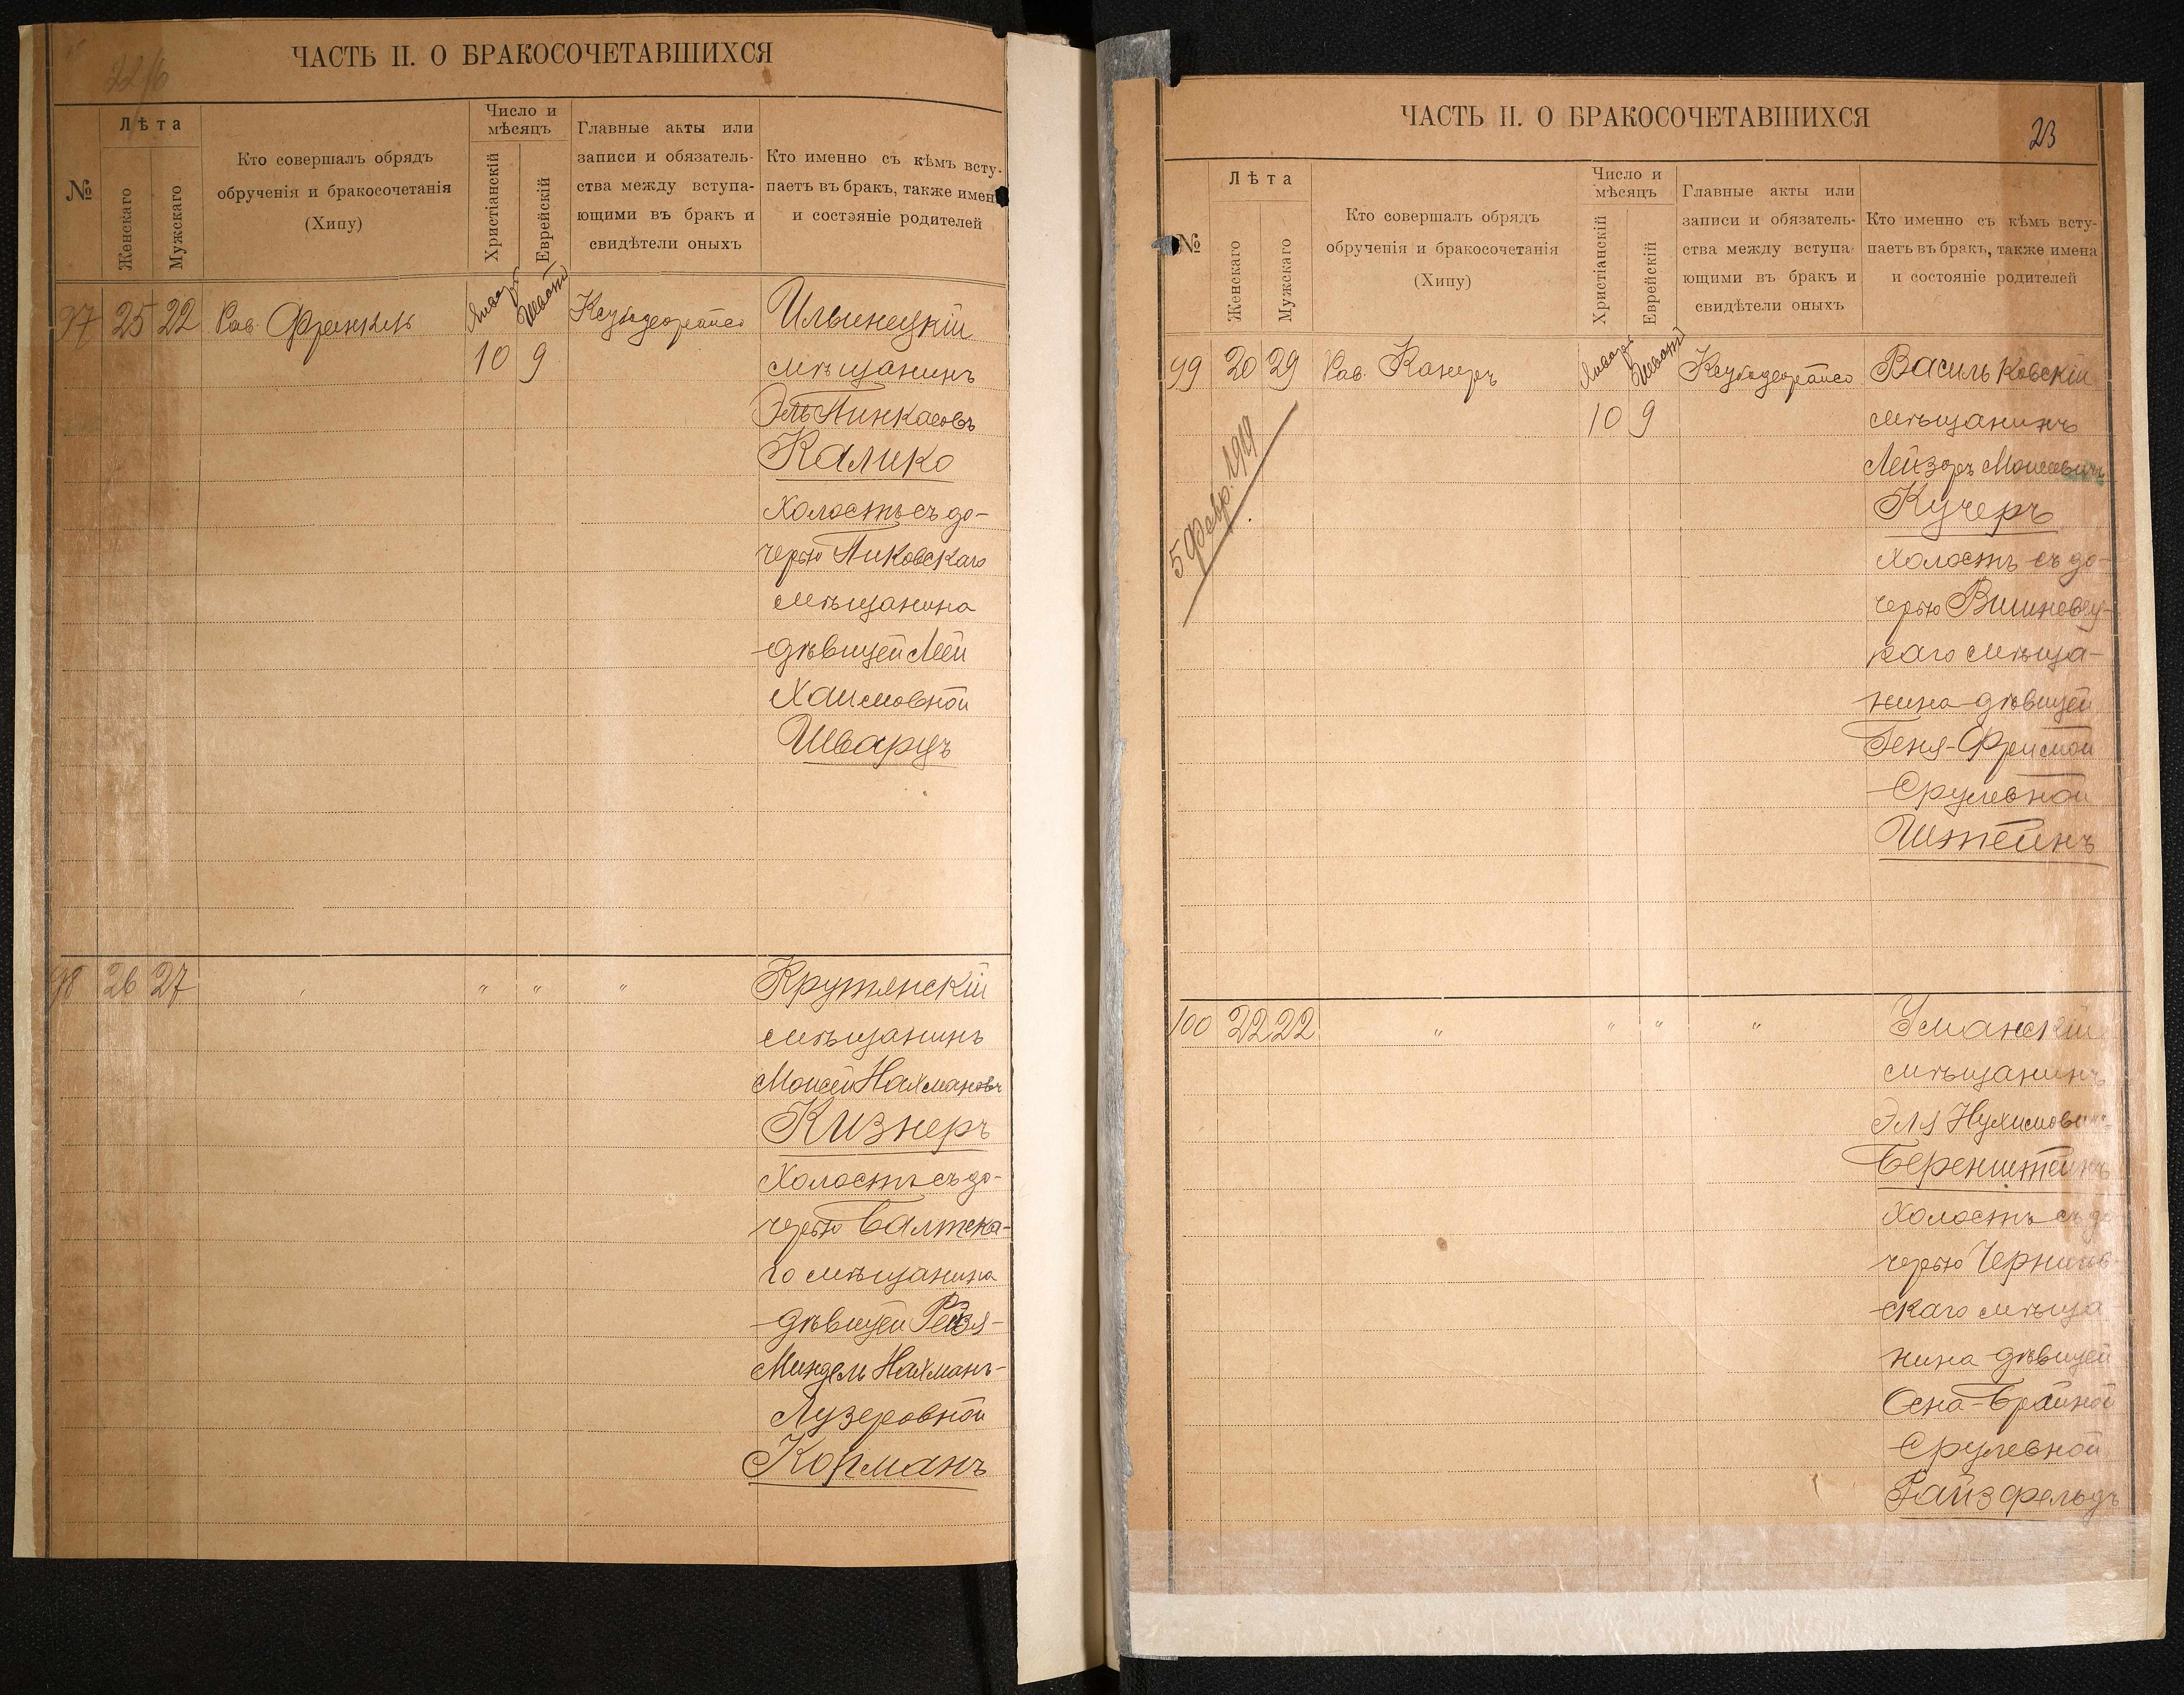 22/б
ЧАСТЬ II. О БРАКОСОЧЕТАВШИХСЯ
№
Лѣта
Женскаго
Мужскаго
Кто совершалъ обрядъ
обрученія и бракосочетанія
(Хипу)
Число и
мѣсяцъ
Христіанскій
Еврейскій
Главные акты или
записи и обязатель-
ства между вступа-
ющими въ бракъ и
свидѣтели оныхъ
Кто именно съ кѣмъ всту-
паетъ въ бракъ, также имена
и состояніе родителей
97 25 22 Рав. Френкель Январь Шватъ
10 9
Ильинецкій
мѣщанинъ
Эль Пинкасовъ
Калико
холостъ съ до-
черью Пиковскаго
мѣщанина
дѣвицей Леей
Хаимовной
Шварцъ
98 26 27 " " " "
Крутянскій
мѣщанинъ
Моисей Нахмановъ
Кизнеръ
Холостъ съ до-
черью Балтска-
го мѣщанина
дѣвицей Рейзя-
Миндель Нахманъ-
Лузеровной
Корманъ
ЧАСТЬ II. О БРАКОСОЧЕТАВШИХСЯ
23
№
Лѣта
Женскаго
Мужскаго
Кто совершалъ обрядъ
обрученія и бракосочетанія
(Хипу)
Число и
мѣсяцъ
Христіанскій
Еврейскій
Главные акты или
записи и обязатель-
ства между вступа-
ющими въ бракъ и
свидѣтели оныхъ
Кто именно съ кѣмъ всту-
паетъ въ бракъ, также имена
и состояніе родителей
99 20 29 Рав. Канеръ Январь Шватъ
10 9
5 Февр. 1919
Васильковскій
мѣщанинъ
Лейзеръ Моисеевичъ
Кучеръ
холостъ съ до-
черью Вишневец-
каго мѣща-
нина дѣвицей
Геня-Фреймой
Срулевной
Штейнъ
100 22 22 " " " "
Уманскій
мѣщанинъ
Эля Нухимович
Беренштейнъ
Холостъ съ до
черью Чернигов-
скаго мѣща
нина дѣвицей
Осна-Брайной
Срулевной
Гайзфельдъ